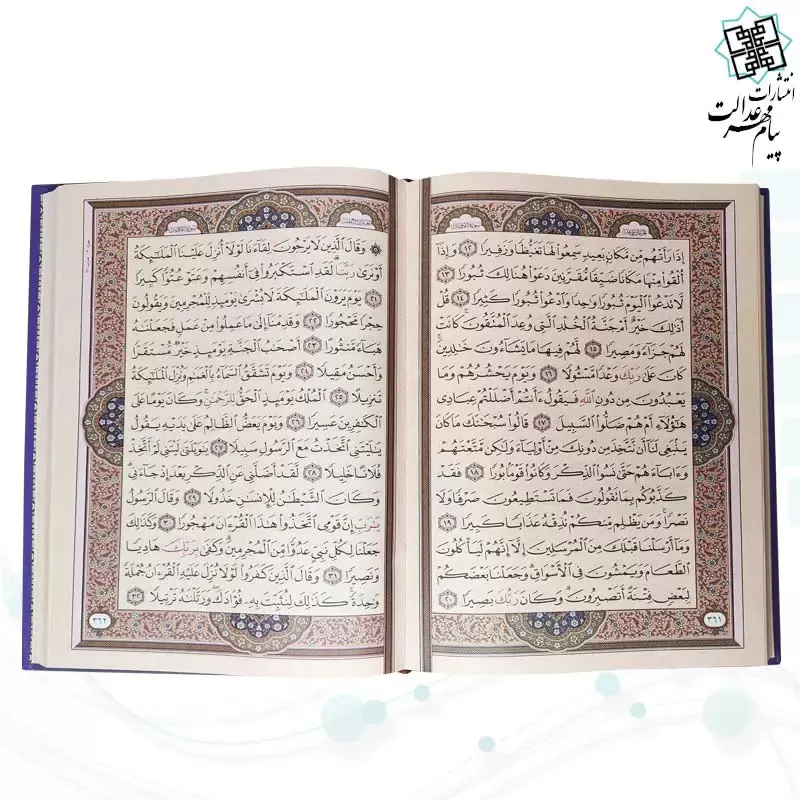 انتشارات
پیام مهر عدالت
إِذَا رَأَتْهُم مِّن مَّكَانٍ بَعِيدٍ سَمِعُوا لَهَا تَغَيُّظًا وَزَفِيرًا ﴿١٢﴾ وَإِذَا
أُلْقُوا مِنْهَا مَكَانًا ضَيِّقًا مُّقَرَّنِينَ دَعَوْا هُنَالِكَ ثُبُورًا ﴿١٣﴾
لَّا تَدْعُوا الْيَوْمَ ثُبُورًا وَاحِدًا وَادْعُوا ثُبُورًا كَثِيرًا ﴿١٤﴾ قُلْ
أَذَٰلِكَ خَيْرٌ أَمْ جَنَّةُ الْخُلْدِ الَّتِي وُعِدَ الْمُتَّقُونَ ۚ كَانَتْ
لَهُمْ جَزَاءً وَمَصِيرًا ﴿١٥﴾ لَّهُمْ فِيهَا مَا يَشَاءُونَ خَالِدِينَ ۚ
كَانَ عَلَىٰ رَبِّكَ وَعْدًا مَّسْئُولًا ﴿١٦﴾ وَيَوْمَ يَحْشُرُهُمْ وَمَا
يَعْبُدُونَ مِن دُونِ اللَّهِ فَيَقُولُ ءَأَنتُمْ أَضْلَلْتُمْ عِبَادِي
هَٰؤُلَاءِ أَمْ هُمْ ضَلُّوا السَّبِيلَ ﴿١٧﴾ قَالُوا سُبْحَانَكَ مَا كَانَ
يَنبَغِي لَنَا أَن نَّتَّخِذَ مِن دُونِكَ مِنْ أَوْلِيَاءَ وَلَٰكِن مَّتَّعْتَهُمْ
وَءَابَاءَهُمْ حَتَّىٰ نَسُوا الذِّكْرَ وَكَانُوا قَوْمًا بُورًا ﴿١٨﴾ فَقَدْ
كَذَّبُوكُم بِمَا تَقُولُونَ فَمَا تَسْتَطِيعُونَ صَرْفًا وَلَا
نَصْرًا ۚ وَمَن يَظْلِم مِّنكُمْ نُذِقْهُ عَذَابًا كَبِيرًا ﴿١٩﴾
وَمَا أَرْسَلْنَا قَبْلَكَ مِنَ الْمُرْسَلِينَ إِلَّا إِنَّهُمْ لَيَأْكُلُونَ
الطَّعَامَ وَيَمْشُونَ فِي الْأَسْوَاقِ ۗ وَجَعَلْنَا بَعْضَكُمْ
لِبَعْضٍ فِتْنَةً أَتَصْبِرُونَ ۗ وَكَانَ رَبُّكَ بَصِيرًا ﴿٢٠﴾
٣٦١
۞ وَقَالَ الَّذِينَ لَا يَرْجُونَ لِقَاءَنَا لَوْلَا أُنزِلَ عَلَيْنَا الْمَلَٰئِكَةُ
أَوْ نَرَىٰ رَبَّنَا ۗ لَقَدِ اسْتَكْبَرُوا فِي أَنفُسِهِمْ وَعَتَوْ عُتُوًّا كَبِيرًا
﴿٢١﴾ يَوْمَ يَرَوْنَ الْمَلَٰئِكَةَ لَا بُشْرَىٰ يَوْمَئِذٍ لِّلْمُجْرِمِينَ وَيَقُولُونَ
حِجْرًا مَّحْجُورًا ﴿٢٢﴾ وَقَدِمْنَا إِلَىٰ مَا عَمِلُوا مِنْ عَمَلٍ فَجَعَلْنَاهُ
هَبَاءً مَّنثُورًا ﴿٢٣﴾ أَصْحَابُ الْجَنَّةِ يَوْمَئِذٍ خَيْرٌ مُّسْتَقَرًّا
وَأَحْسَنُ مَقِيلًا ﴿٢٤﴾ وَيَوْمَ تَشَقَّقُ السَّمَاءُ بِالْغَمَامِ وَنُزِّلَ الْمَلَٰئِكَةُ
تَنزِيلًا ﴿٢٥﴾ الْمُلْكُ يَوْمَئِذٍ الْحَقُّ لِلرَّحْمَٰنِ ۚ وَكَانَ يَوْمًا عَلَى
الْكَافِرِينَ عَسِيرًا ﴿٢٦﴾ وَيَوْمَ يَعَضُّ الظَّالِمُ عَلَىٰ يَدَيْهِ يَقُولُ
يَا لَيْتَنِي اتَّخَذْتُ مَعَ الرَّسُولِ سَبِيلًا ﴿٢٧﴾ يَا وَيْلَتَىٰ لَيْتَنِي لَمْ أَتَّخِذْ
فُلَانًا خَلِيلًا ﴿٢٨﴾ لَّقَدْ أَضَلَّنِي عَنِ الذِّكْرِ بَعْدَ إِذْ جَاءَنِي ۗ
وَكَانَ الشَّيْطَانُ لِلْإِنسَانِ خَذُولًا ﴿٢٩﴾ وَقَالَ الرَّسُولُ
يَا رَبِّ إِنَّ قَوْمِي اتَّخَذُوا هَٰذَا الْقُرْءَانَ مَهْجُورًا ﴿٣٠﴾ وَكَذَٰلِكَ
جَعَلْنَا لِكُلِّ نَبِيٍّ عَدُوًّا مِّنَ الْمُجْرِمِينَ ۗ وَكَفَىٰ بِرَبِّكَ هَادِيًا
وَنَصِيرًا ﴿٣١﴾ وَقَالَ الَّذِينَ كَفَرُوا لَوْلَا نُزِّلَ عَلَيْهِ الْقُرْءَانُ جُمْلَةً
وَاحِدَةً ۚ كَذَٰلِكَ لِنُثَبِّتَ بِهِ فُؤَادَكَ ۖ وَرَتَّلْنَاهُ تَرْتِيلًا ﴿٣٢﴾
٣٦٢